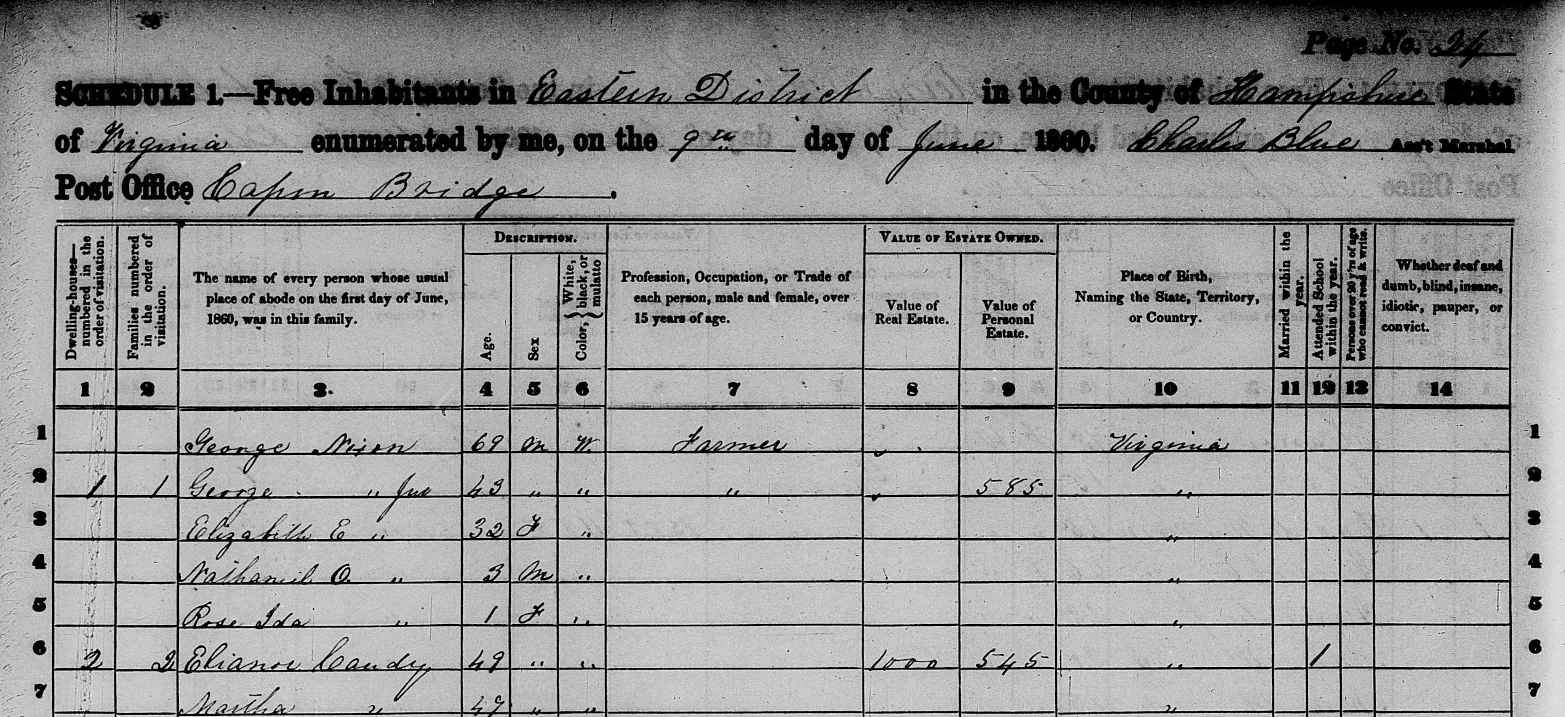 Page No. 24
SCHEDULE 1.—Free Inhabitants in Eastern District in the County of Hampshire State
of Virginia enumerated by me, on the 9th day of June 1860. Charles Blue Ass't Marshal
Post Office Capon Bridge.
Dwelling-houses—numbered in the order of visitation.
Families numbered in the order of visitation.
The name of every person whose usual place of abode on the first day of June, 1860, was in this family.
DESCRIPTION.
Age.
Sex
Color, { White, black, or mulatto
Profession, Occupation, or Trade of each person, male and female, over 15 years of age.
VALUE OF ESTATE OWNED.
Value of Real Estate.
Value of Personal Estate.
Place of Birth, Naming the State, Territory, or Country.
Married within the year.
Attended School within the year.
Persons over 20 y'rs of age who cannot read & write.
Whether deaf and dumb, blind, insane, idiotic, pauper, or convict.
1 2 3. 4 5 6 7 8 9 10 11 12 13 14
1 George Nixon 69 M W. Farmer " Virginia 1
2 1 1 George " Jno 43 " " " " 585 " 2
3 Elizabeth E " 32 F " " 3
4 Nathaniel O. " 3 M " " 4
5 Rose Ida " 1 F " " 5
6 2 2 Elianor Caudy 49 " " 1000 545 " 1 6
7 Martha " 47 " " " 7